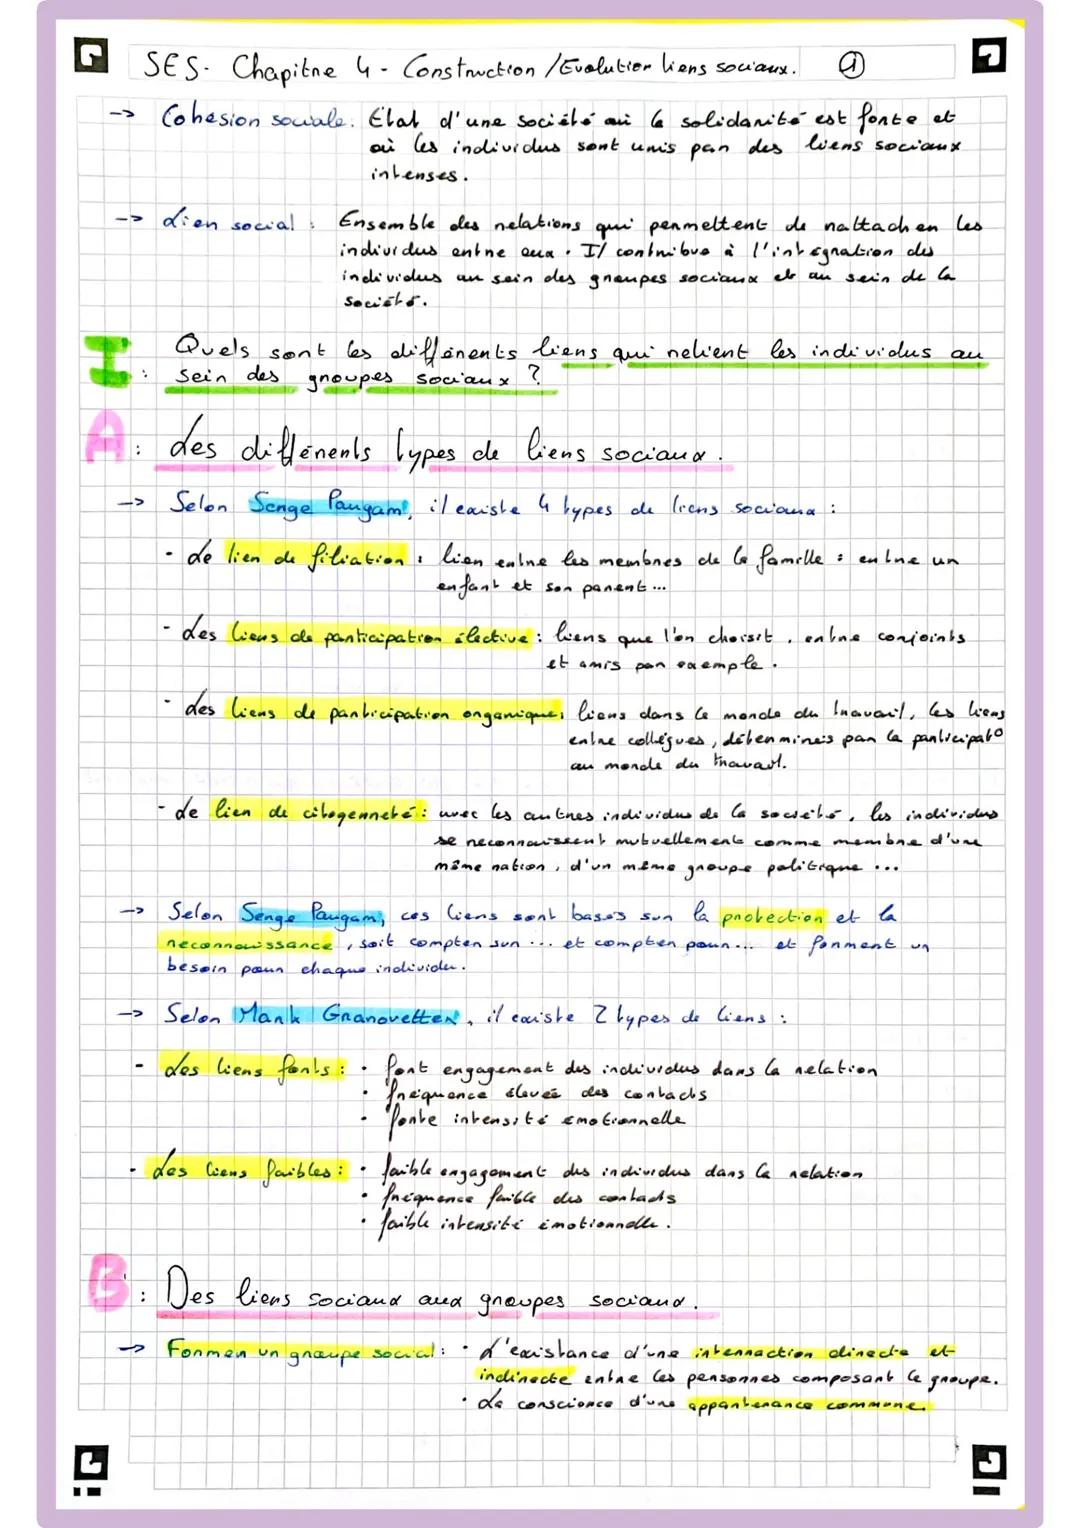 SES. Chapitre 4 - Construction / Evolution liens sociaux. 1
-> Cohesion sociale: Etat d'une société où la solidarité est forte et
où les individus sont unis par des liens sociaux
intenses.
-> Lien social : Ensemble des relations qui permettent de rattacher les
individus entre eux. Il contribue à l'intégration des
individus au sein des groupes sociaux et au sein de la
société.
I : Quels sont les différents liens qui relient les individus au
sein des groupes sociaux ?
A : Les différents types de liens sociaux.
-> Selon Serge Paugam, il existe 4 types de liens sociaux :
- Le lien de filiation : lien entre les membres de la famille : entre un
enfant et son parent...
- Les liens de participation élective : liens que l'on choisit, entre conjoints
et amis par exemple.
- Les liens de participation organique : liens dans le monde du travail, les liens
entre collègues, déterminés par la participat°
au monde du travail.
- Le lien de citoyenneté : avec les autres individus de la société, les individus
se reconnaissent mutuellement comme membre d'une
même nation, d'un même groupe politique ...
-> Selon Serge Paugam, ces liens sont basés sur la protection et la
reconnaissance, soit compter sur ... et compter pour ... et forment un
besoin pour chaque individu.
-> Selon Mark Granovetter, il existe 2 types de liens :
- Les liens forts : • fort engagement des individus dans la relation
• fréquence élevée des contacts
• forte intensité émotionnelle
- Les liens faibles : • faible engagement des individus dans la relation
• fréquence faible des contacts
• faible intensité émotionnelle.
B : Des liens sociaux aux groupes sociaux.
-> Former un groupe social : • L'existance d'une interraction directe et
indirecte entre les personnes composant le groupe.
• La conscience d'une appartenance commune.